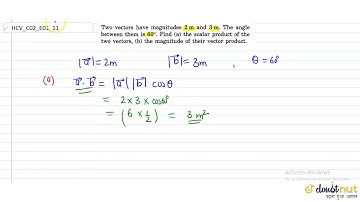 HCV_C02_E01_11
Two vectors have magnitudes 2 m and 3 m. The angle
between them is 60°. Find (a) the scalar product of the
two vectors, (b) the magnitude of their vector product.
|a⃗| = 2m |b⃗| = 3m , θ = 60°
(a) a⃗·b⃗ = |a⃗| |b⃗| cosθ
= 2 × 3 × cos60°
= (6 × 1/2) = 3 m²
Activate Windows
doubtnut